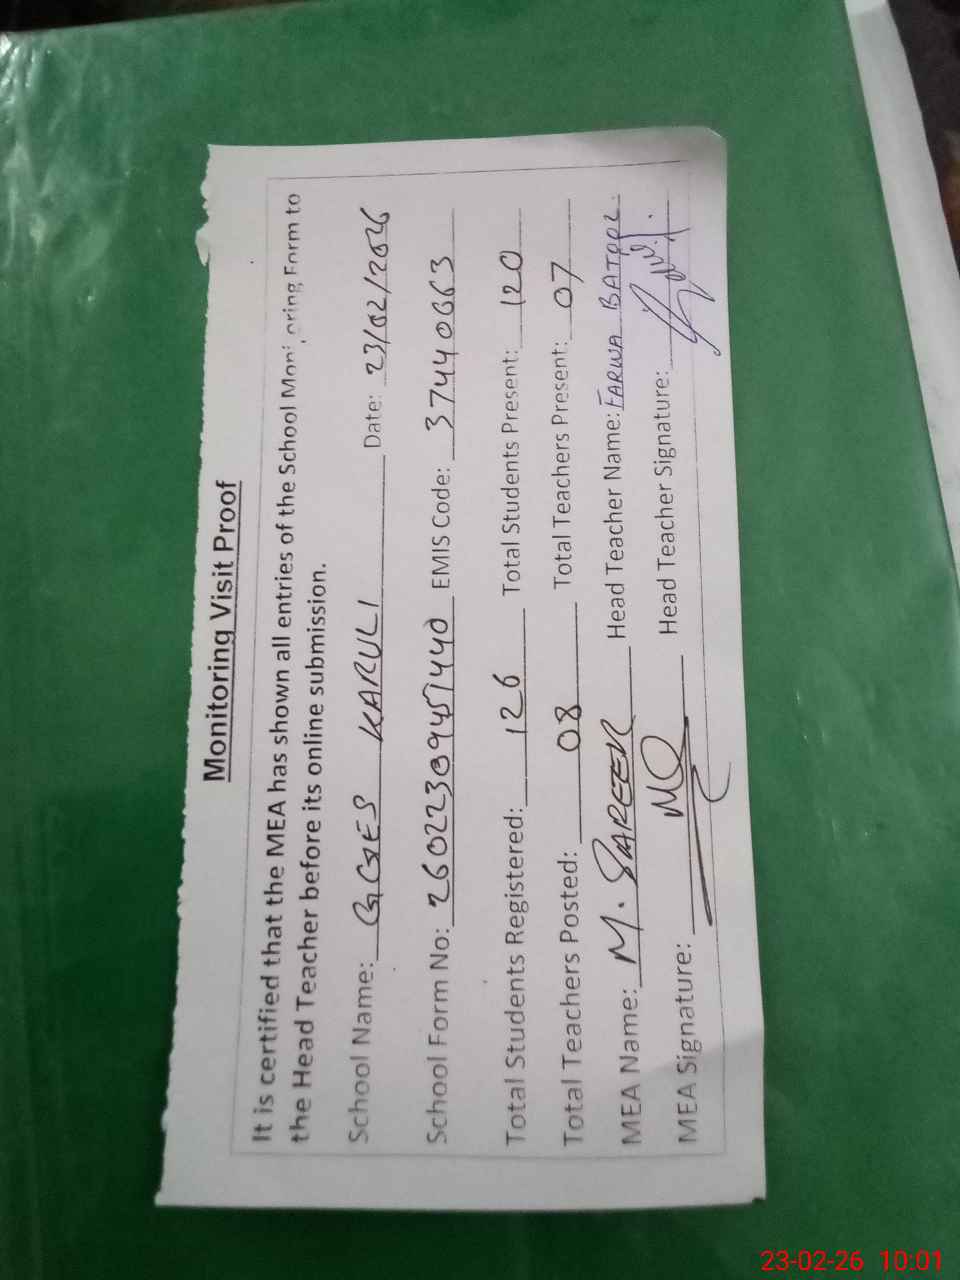 Monitoring Visit Proof
It is certified that the MEA has shown all entries of the School Monitoring Form to
the Head Teacher before its online submission.
School Name: GGES KARULI Date: 23/02/2026
School Form No: 260223094571440 EMIS Code: 37440663
Total Students Registered: 126 Total Students Present: 120
Total Teachers Posted: 08 Total Teachers Present: 07
MEA Name: M. Head Teacher Name: FARWA BATOOL.
MEA Signature: Head Teacher Signature:
23-02-26 10:01